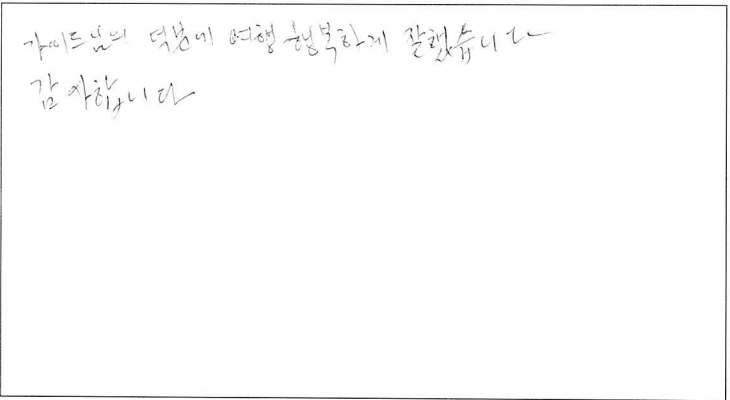 가이드님의 덕분에 여행 행복하게 잘했습니다
감사합니다